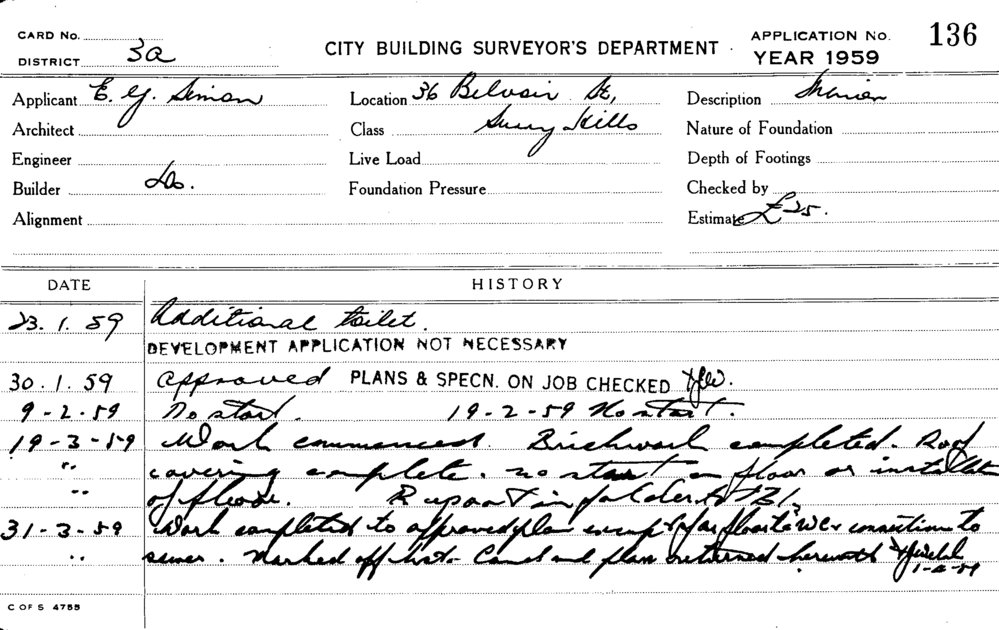 CARD No.
DISTRICT 3a
CITY BUILDING SURVEYOR'S DEPARTMENT
APPLICATION No. 136
YEAR 1959
Applicant E. G. Simon
Location 36 Belvoir St,
Description
Architect
Class Surry Hills
Nature of Foundation
Engineer
Live Load
Depth of Footings
Builder Do.
Foundation Pressure
Checked by
Alignment
Estimate £25.
DATE HISTORY
23.1.59 Additional toilet.
DEVELOPMENT APPLICATION NOT NECESSARY
30.1.59 Approved PLANS & SPECN. ON JOB CHECKED
9-2-59 No start. 19-2-59 No start.
19-3-59 Work commenced. Brickwork completed. Roof
" covering complete. no start on floor or
" of Report in folder
31-3-59 Work completed to approved plan except for floor to W.C & connection to
" sewer. Marked off list. Card and plan returned herewith
1-4-59
C OF S 4755